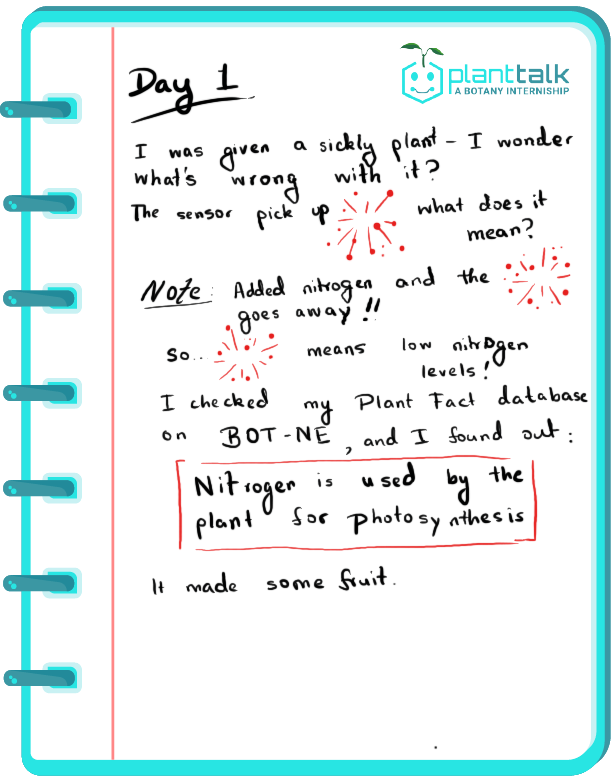 planttalk
A BOTANY INTERNISHIP
Day 1
I was given a sickly plant – I wonder
what's wrong with it?
The sensor pick up what does it
mean?
Note: Added nitrogen and the
goes away!!
So.. means low nitrogen
levels!
I checked my Plant Fact database
on BOT-NE, and I found out:
Nitrogen is used by the
plant for photosynthesis
It made some fruit.